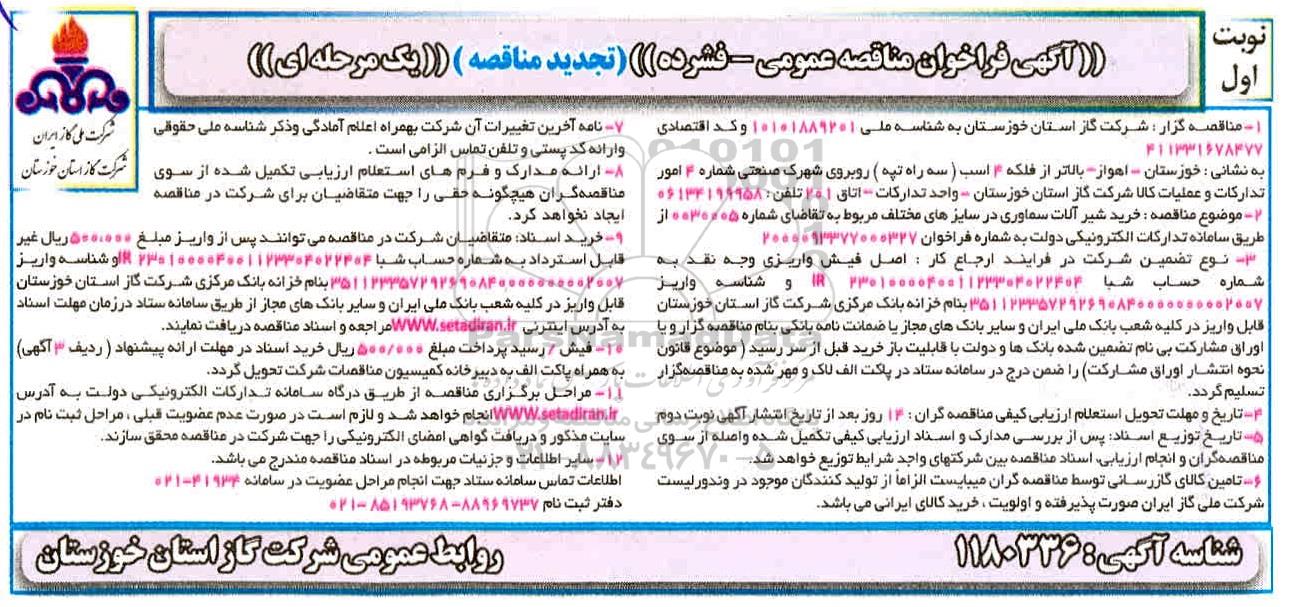 نوبت
اول
((آگهی فراخوان مناقصه عمومی – فشرده))) (تجدید مناقصه) ((یک مرحله ای))
شرکت ملی گاز ایران
شرکت گاز استان خوزستان
۱- مناقصه گزار : شرکت گاز استان خوزستان به شناسه ملی ۱۰۱۰۱۸۸۹۲۰۱ و کد اقتصادی
۴۱۱۳۳۱۶۷۸۴۷۷
به نشانی : خوزستان – اهواز– بالاتر از فلکه ۴ اسب ( سه راه تپه ) روبروی شهرک صنعتی شماره ۴ امور
تدارکات و عملیات کالا شرکت گاز استان خوزستان – واحد تدارکات – اتاق ۲۰۱ تلفن : ۰۶۱۳۴۱۹۹۹۵۸
۲- موضوع مناقصه : خرید شیر آلات سماوری در سایز های مختلف مربوط به تقاضای شماره ۰۰۳۰۰۰۵ از
طریق سامانه تدارکات الکترونیکی دولت به شماره فراخوان ۲۰۰۰۰۹۳۳۷۷۰۰۰۳۲۷
۳- نوع تضمین شرکت در فرایند ارجاع کار : اصل فیش واریزی وجه نقد به
شماره حساب شبا IR ۲۳۰۱۰۰۰۰۴۰۰۱۱۲۳۳۰۴۰۲۲۴۰۴ و شناسه واریز
۳۵۱۱۲۳۳۵۷۲۹۲۶۹۰۸۴۰۰۰۰۰۰۰۰۰۲۰۰۷ بنام خزانه بانک مرکزی شرکت گاز استان خوزستان
قابل واریز در کلیه شعب بانک ملی ایران و سایر بانک های مجاز یا ضمانت نامه بانکی بنام مناقصه گزار و یا
اوراق مشارکت بی نام تضمین شده بانک ها و دولت با قابلیت باز خرید قبل از سر رسید ( موضوع قانون
نحوه انتشار اوراق مشارکت) را ضمن درج در سامانه ستاد در پاکت الف لاک و مهر شده به مناقصه‌گزار
تسلیم گردد.
۴- تاریخ و مهلت تحویل استعلام ارزیابی کیفی مناقصه گران : ۱۴ روز بعد از تاریخ انتشار آگهی نوبت دوم
۵- تاریخ توزیع اسناد: پس از بررسی مدارک و اسناد ارزیابی کیفی تکمیل شده واصله از سوی
مناقصه‌گران و انجام ارزیابی، اسناد مناقصه بین شرکتهای واجد شرایط توزیع خواهد شد.
۶- تامین کالای گازرسانی توسط مناقصه گران میبایست الزاماً از تولید کنندگان موجود در وندور لیست
شرکت ملی گاز ایران صورت پذیرفته و اولویت ، خرید کالای ایرانی می باشد.
۷- نامه آخرین تغییرات آن شرکت بهمراه اعلام آمادگی وذکر شناسه ملی حقوقی
وارائه کد پستی و تلفن تماس الزامی است .
۸- ارائه مدارک و فرم های استعلام ارزیابی تکمیل شده از سوی
مناقصه‌گران هیچگونه حقی را جهت متقاضیان برای شرکت در مناقصه
ایجاد نخواهد کرد.
۹- خرید اسناد: متقاضیان شرکت در مناقصه می توانند پس از واریز مبلغ ۵۰۰،۰۰۰ ریال غیر
قابل استرداد به شماره حساب شبا IR ۲۳۰۱۰۰۰۰۴۰۰۱۱۲۳۳۰۴۰۲۲۴۰۴ و شناسه واریز
۳۵۱۱۲۳۳۵۷۲۹۲۶۹۰۸۴۰۰۰۰۰۰۰۰۰۲۰۰۷ بنام خزانه بانک مرکزی شرکت گاز استان خوزستان
قابل واریز در کلیه شعب بانک ملی ایران و سایر بانک های مجاز از طریق سامانه ستاد درزمان مهلت اسناد
به آدرس اینترنتی www.setadiran.ir مراجعه و اسناد مناقصه دریافت نمایند.
۱۰- فیش / رسید پرداخت مبلغ ۵۰۰/۰۰۰ ریال خرید اسناد در مهلت ارائه پیشنهاد ( ردیف ۳ آگهی)
به همراه پاکت الف به دبیرخانه کمیسیون مناقصات شرکت تحویل گردد.
۱۱- مراحل برگزاری مناقصه از طریق درگاه سامانه تدارکات الکترونیکی دولت به آدرس
www.setadiran.ir انجام خواهد شد و لازم است در صورت عدم عضویت قبلی ، مراحل ثبت نام در
سایت مذکور و دریافت گواهی امضای الکترونیکی را جهت شرکت در مناقصه محقق سازند.
۱۲- سایر اطلاعات و جزئیات مربوطه در اسناد مناقصه مندرج می باشد.
اطلاعات تماس سامانه ستاد جهت انجام مراحل عضویت در سامانه ۴۱۹۳۴-۰۲۱
دفتر ثبت نام ۸۸۹۶۹۷۳۷- ۸۵۱۹۳۷۶۸ -۰۲۱
ParsNamadData
۰۲۱-۸۸۳۴۹۶۷۰-۵
شناسه آگهی : ۱۱۸۰۳۳۶
روابط عمومی شرکت گاز استان خوزستان